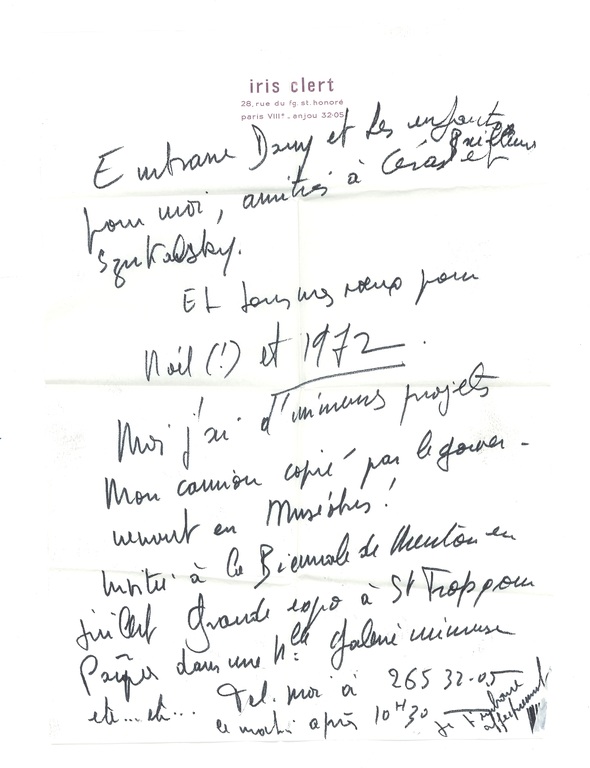 iris clert
28, rue du fg. st. honoré
paris VIIIe. anjou 32-05
Embrasse Dany et les enfants
pour moi, amitiés à César et
Szukalsky.
Et tous mes vœux pour
Noël (!) et 1972.
Moi j'ai d'immenses projets
Mon camion copié par le gouver-
nement en Muséobus!
Invitée à la Biennale de Menton en
juillet Grande expo à St Trop pour
Pâques dans une Nlle Galerie immense
etc... etc... Tel. moi à 265 32-05
le matin après 10H30 je t'embrasse
affectueusement